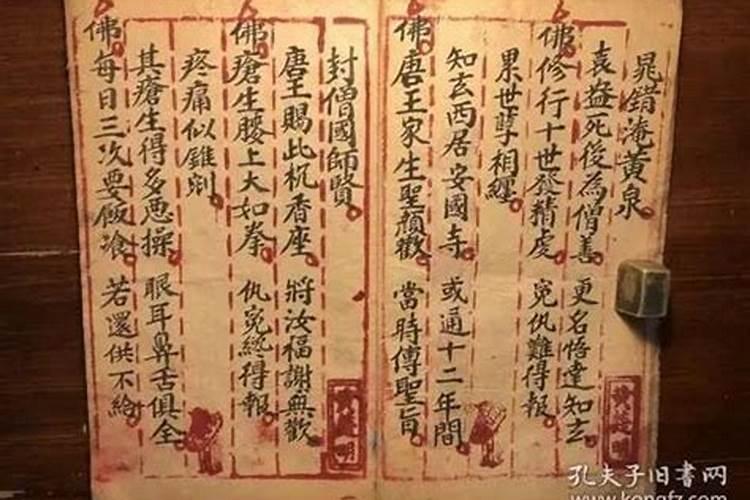 晁錯淹黃泉
袁盎死後為僧善 更名悟達知玄
佛修行十世發精虔 冤仇難得報
累世孽相纏
知玄西居安國寺 或通十二年間
佛唐王家生聖顏歡 當時傳聖旨
封僧國師賢
唐王賜此机香座 將汝福謝無歡
佛瘡生腰上大如拳 仇冤終得報
疼痛似錐剜
其瘡生得多惡操 眼耳鼻舌俱全
佛每日三次要飯飡 若還供不給
孔夫子旧書网
www.kongfz.com